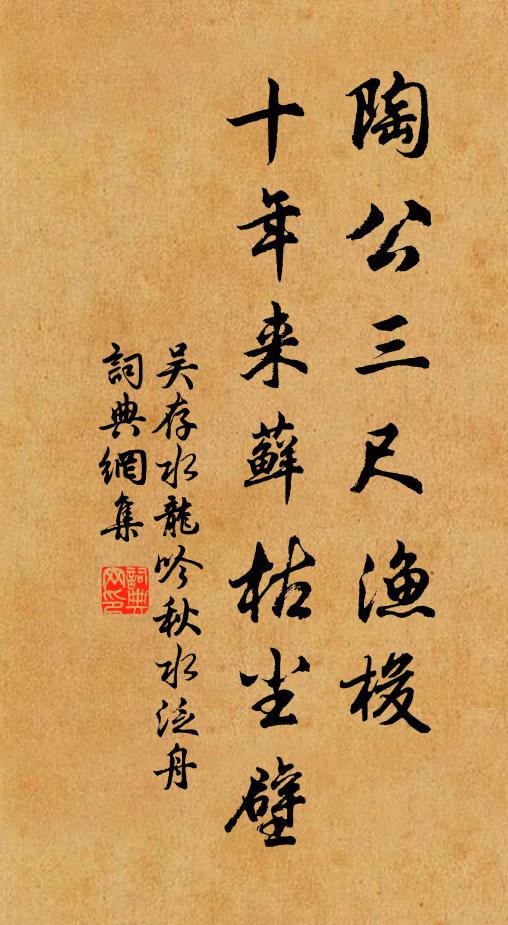 陶公三尺漁梭
十年来蘚枯尘壁
吴存水龍吟秋水泛舟
詞典網集
詞典
网印